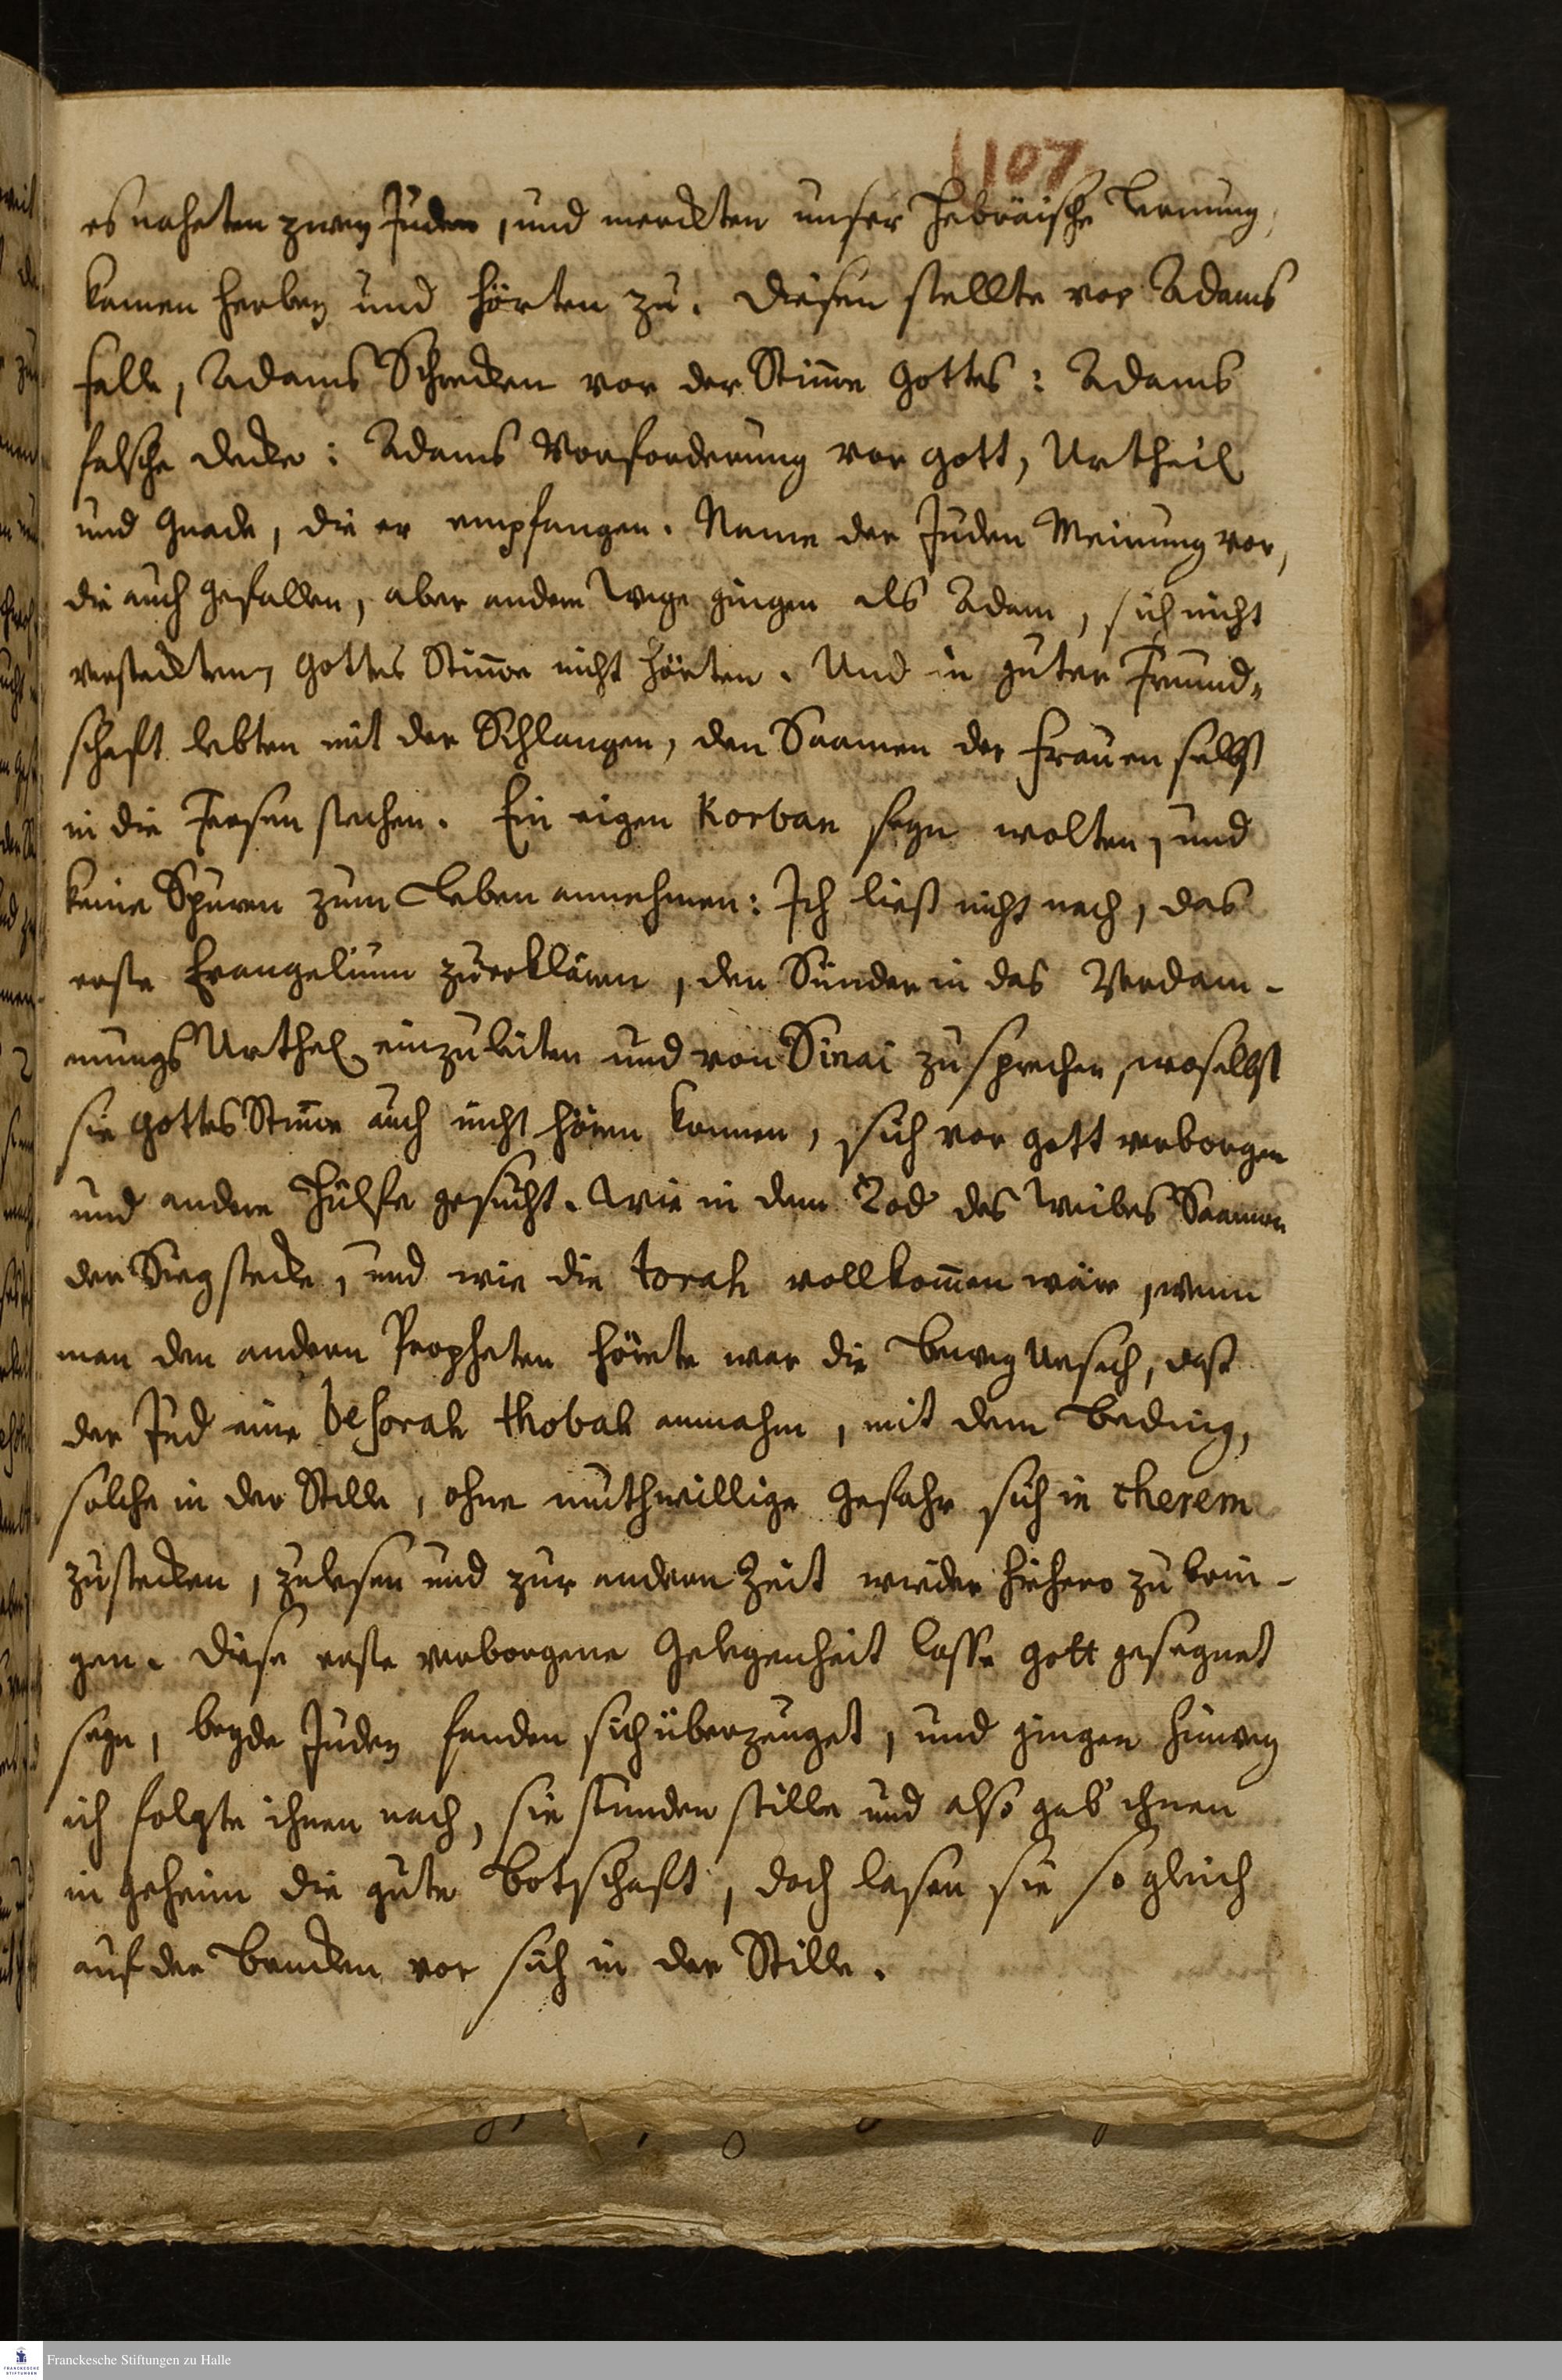 107
es naheten zwey Juden, und merckten unser Hebräische Lernung,
kamen herbey und hörten zu. Diesen stellte vor Adams
falle, Adams Schrecken vor der Stim̄e Gottes: Adams
falsche decke: Adams Vorforderung vor Gott, Urtheil
und Gnade, die er empfangen. Name der Juden Meinung vor,
die auch gefallen, aber andern Wege gingen als Adam, sich nicht
versteckten, Gottes Stim̄e nicht hörten. Und in guter Freund-
schafft lebten mit der Schlangen, den Saamen der Frauen selbst
in die Fersen stechen. Ein eigen Korban seyn wolten, und
keine Spuren zum Leben annehmen: Ich ließ nicht nach, das
erste Evangelium zuerklären, den Sünder in das Verdam-
mungs Urthel einzuleiten und von Sinai zu sprechen, woselbst
sie Gottes Stim̄e auch nicht hören konnen, sich vor Gott verborgen
und andere Hülfe gesucht. Wie in dem Tod des Weibes Saamen
der Sieg stecke, und wie die torah vollkom̄en wäre, wenn
man den andern Propheten hörete war die Beweg Ursach, daß
der Jud eine besorah thobah annahm, mit dem Beding,
solche in der Stille, ohne muthwillige Gefahr sich in cherem
zustecken, zulesen und zur andern Zeit wieder hiehero zu brin-
gen. Diese erste verborgene Gelegenheit lasse Gott gesegnet
seyn, beyde Juden fanden sich überzeuget, und gingen hinweg
ich folgte ihnen nach, sie stunden stille und also gab ihnen
in geheim die gute Botschafft, doch lasen sie so gleich
auf der Brucken vor sich in der Stille.
Franckesche Stiftungen zu Halle